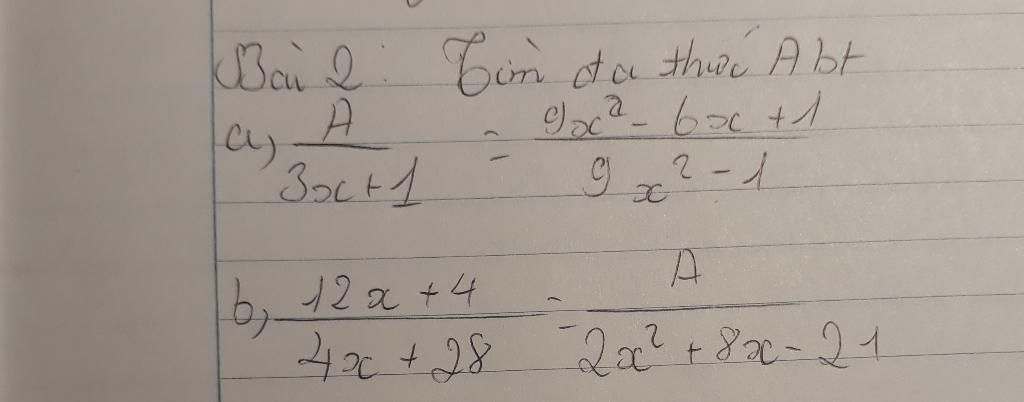 Bài 2: Tìm đa thức A bt
a, A/(3x+1) = (9x² - 6x + 1)/(9x² - 1)
b, (12x + 4)/(4x + 28) = A/(2x² + 8x - 21)